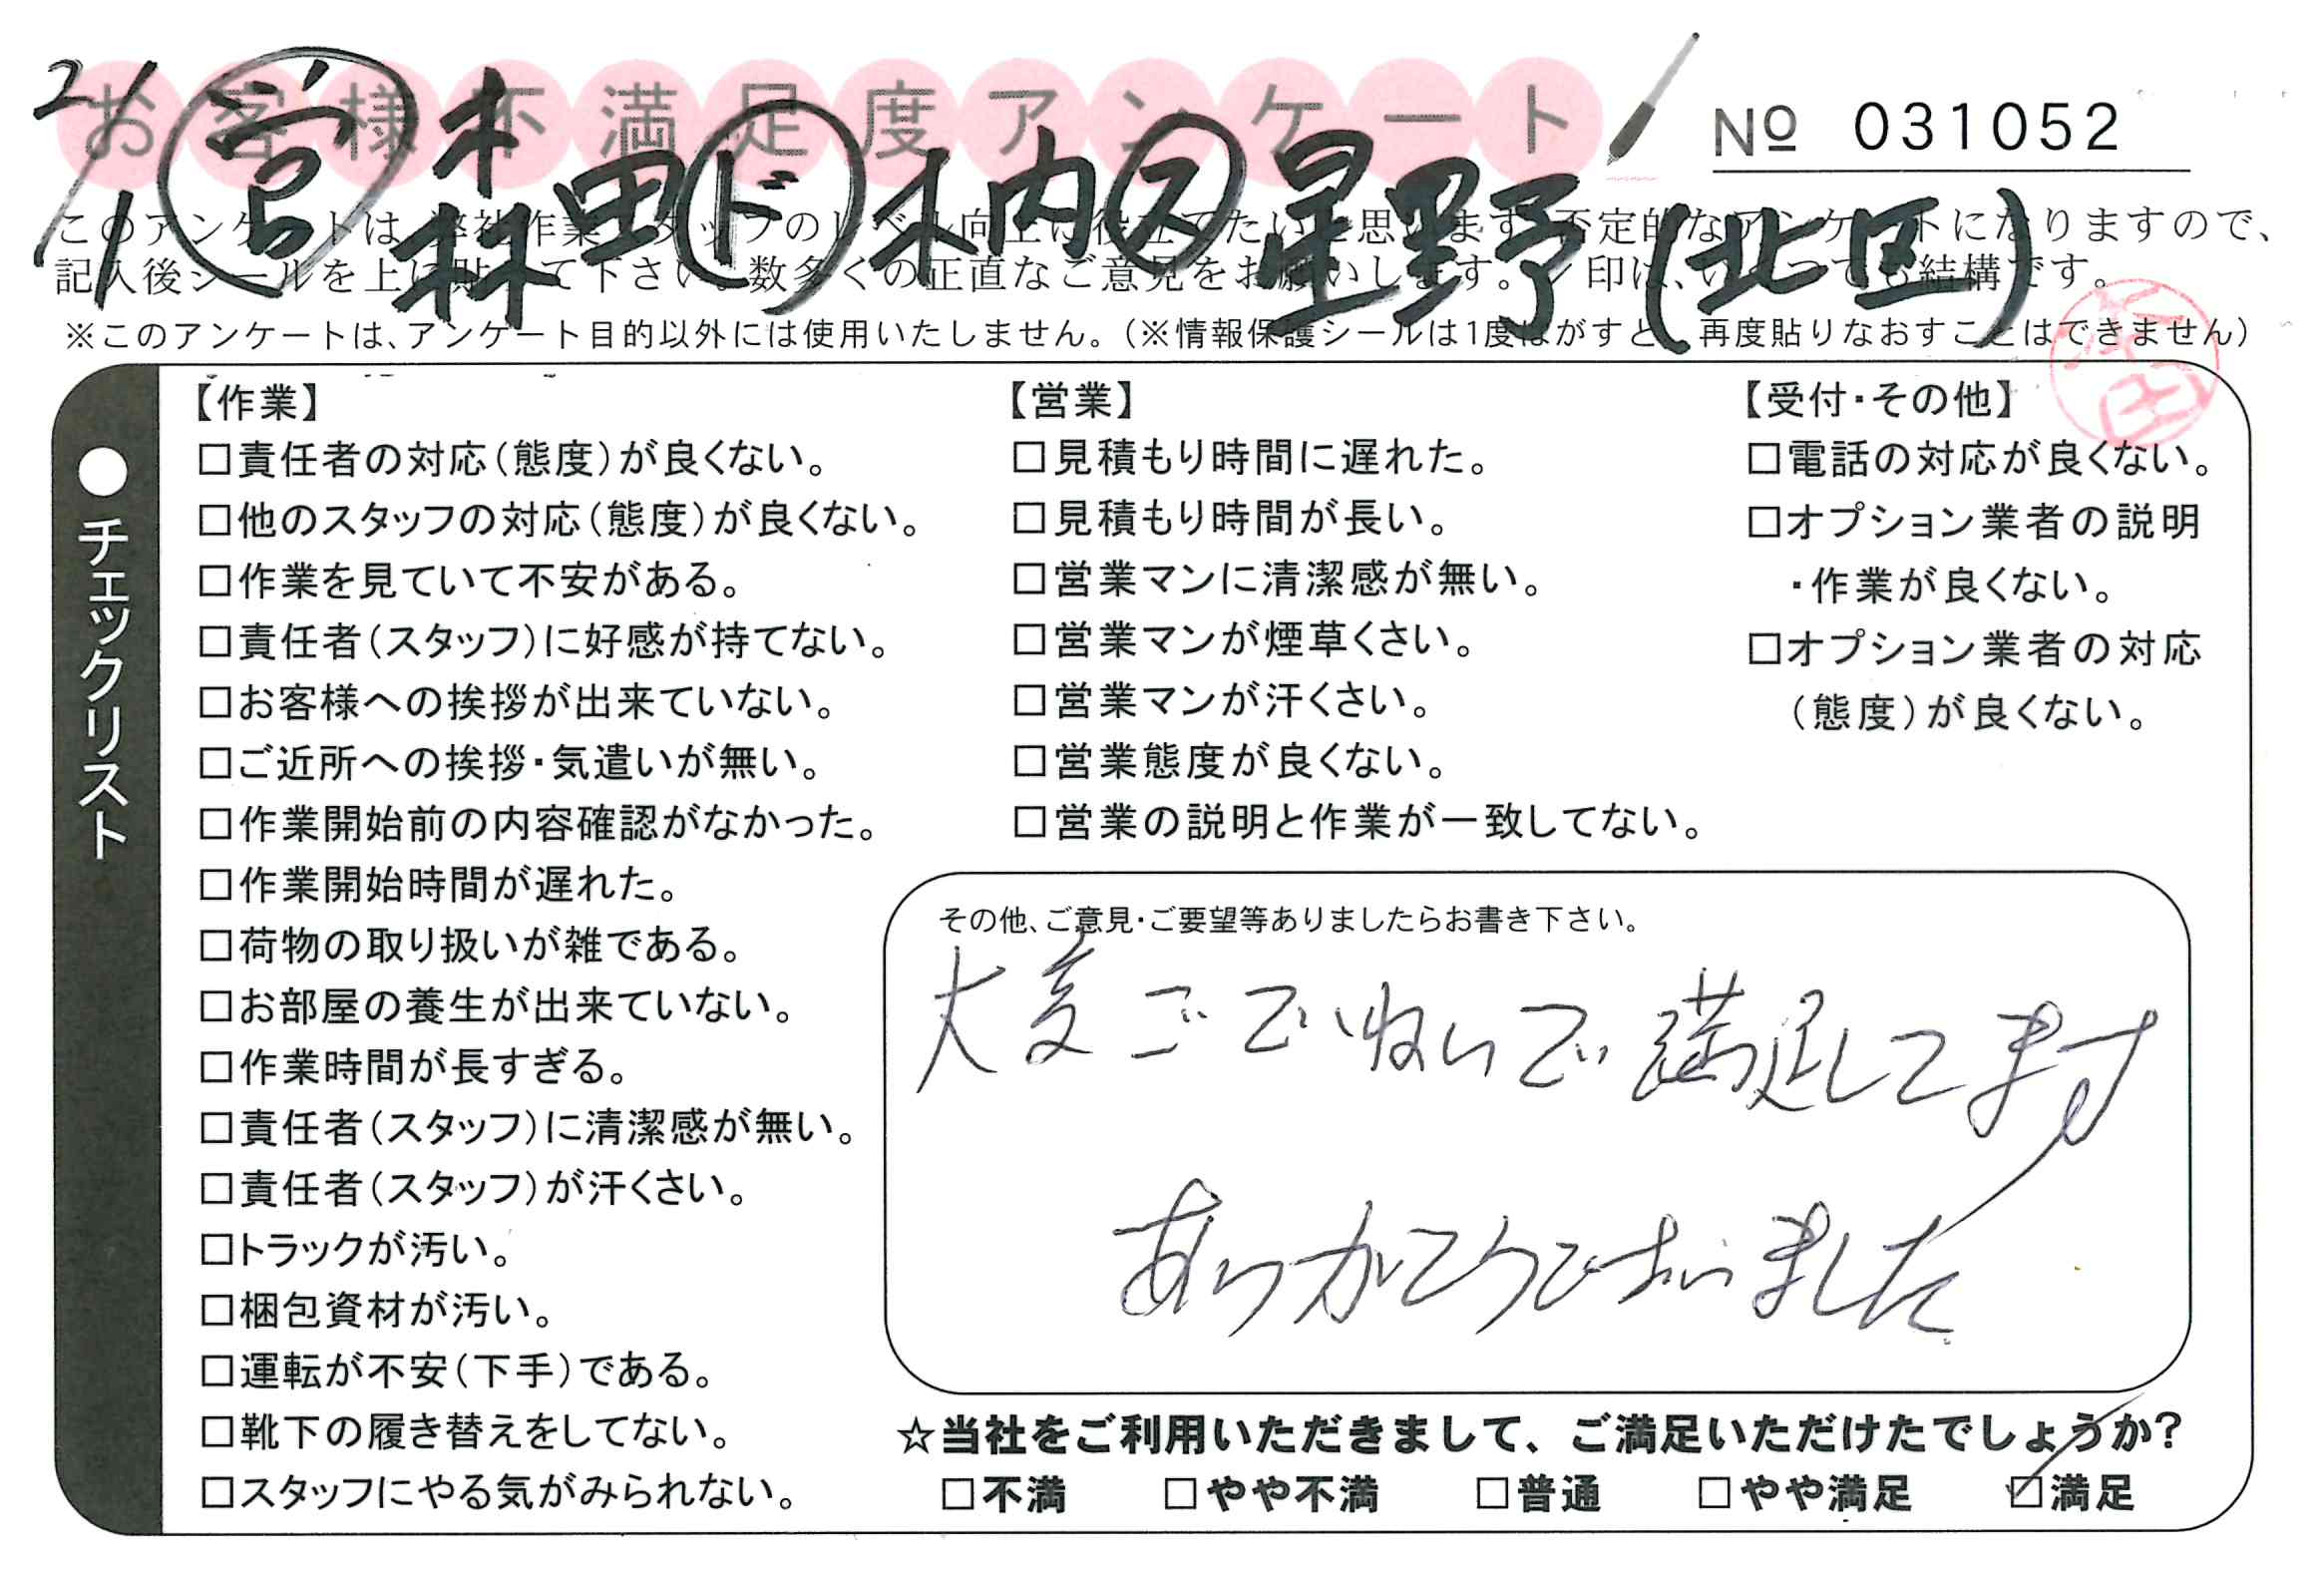 お客様不満足度アンケート
No 031052
2/1 営 森田 ド 木内 ス 星野(北区)
このアンケートは、弊社作業スタッフのレベル向上に役立てたいと思います。否定的なアンケートになりますので、
記入後シールを上に貼って下さい。数多くの正直なご意見をお願いします。✓印は、いくつでも結構です。
※このアンケートは、アンケート目的以外には使用いたしません。(※情報保護シールは1度はがすと、再度貼りなおすことはできません)
●チェックリスト
【作業】
□責任者の対応(態度)が良くない。
□他のスタッフの対応(態度)が良くない。
□作業を見ていて不安がある。
□責任者(スタッフ)に好感が持てない。
□お客様への挨拶が出来ていない。
□ご近所への挨拶・気遣いが無い。
□作業開始前の内容確認がなかった。
□作業開始時間が遅れた。
□荷物の取り扱いが雑である。
□お部屋の養生が出来ていない。
□作業時間が長すぎる。
□責任者(スタッフ)に清潔感が無い。
□責任者(スタッフ)が汗くさい。
□トラックが汚い。
□梱包資材が汚い。
□運転が不安(下手)である。
□靴下の履き替えをしてない。
□スタッフにやる気がみられない。
【営業】
□見積もり時間に遅れた。
□見積もり時間が長い。
□営業マンに清潔感が無い。
□営業マンが煙草くさい。
□営業マンが汗くさい。
□営業態度が良くない。
□営業の説明と作業が一致してない。
【受付・その他】
□電話の対応が良くない。
□オプション業者の説明
・作業が良くない。
□オプション業者の対応
(態度)が良くない。
その他、ご意見・ご要望等ありましたらお書き下さい。
大変ごていねいで満足してます
ありがとうございました
☆当社をご利用いただきまして、ご満足いただけたでしょうか?
□不満 □やや不満 □普通 □やや満足 ☑満足